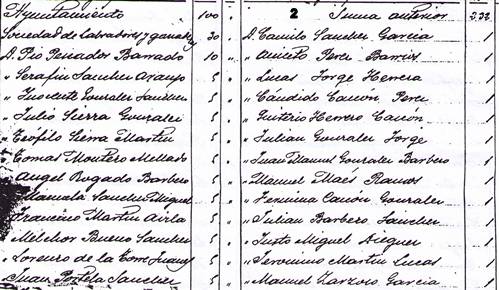 Ayuntamiento 100 "
Sociedad de Labradores y ganad 30 "
D. Pio Peinador Barrado 10 "
" Serafin Sanchez Araujo 5 "
" Inocente Gonzalez Sanchez 5 "
" Julio Sierra Gonzalez 5 "
" Teófilo Sierra Martin 5 "
" Tomas Montero Mellado 5 "
" Angel Rogado Barbero 5 "
" Manuela Sanchez Miguel 5 "
Francisco Martin Avila 5 "
" Melchor Bueno Sanchez 5 "
" Lorenzo de la Torre Juanes 5 "
" Juan Portela Sanchez 5 "
2 Suma anterior
D. Camilo Sanchez Garcia 1
" Aniceto Perez Barrios 1
" Lucas Jorge Herrera 1
" Cándido Cascón Perez 1
" Quiterio Herrero Cascón 1
" Julian Gonzalez Jorge 1
" Juan Manuel Gonzalez Barbero 1
" Manuel Maés Ramos 1
" Fermina Cascón Gonzalez 1
" Julian Barbero Sanchez 1
" Justo Miguel 1
" Jeronimo Martin Lucas 1
" Manuel Zarzoso Garcia 1